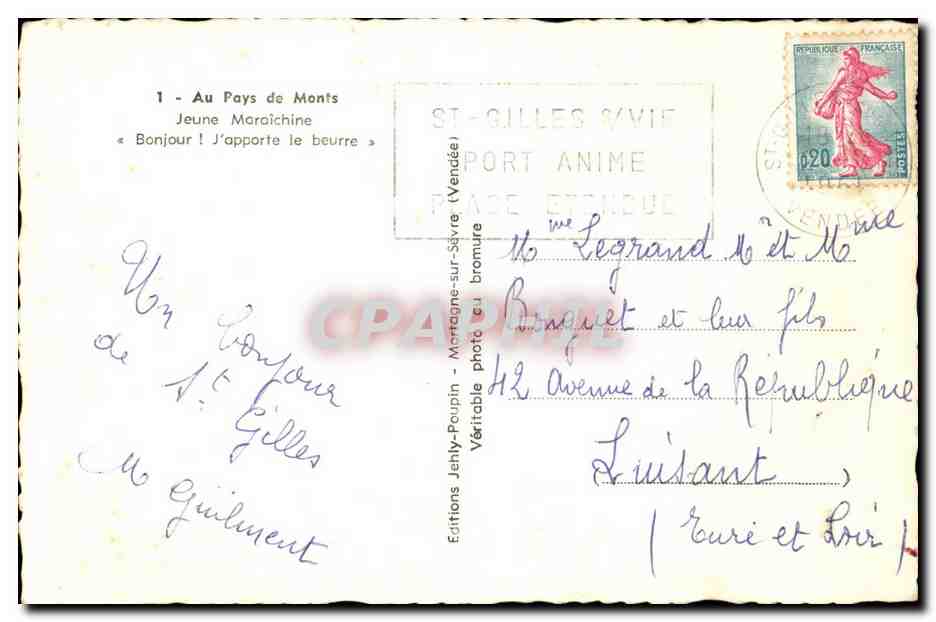 1 - Au Pays de Monts
Jeune Maraîchine
« Bonjour ! J'apporte le beurre »
ST-GILLES S/VIE
PORT ANIME
PLAGE ETENDUE
REPUBLIQUE FRANÇAISE
0,20
POSTES
ST-G
VENDEE
Un bonjour
de St. Gilles
M Guilment
Editions Jehly-Poupin - Mortagne-sur-Sèvre (Vendée)
Véritable photo au bromure
Mme Legrand Mr et Mme
Bouquet et leur fils
42 Avenue de la République
Luisant,
(Eure et Loir)
CPAPHIL